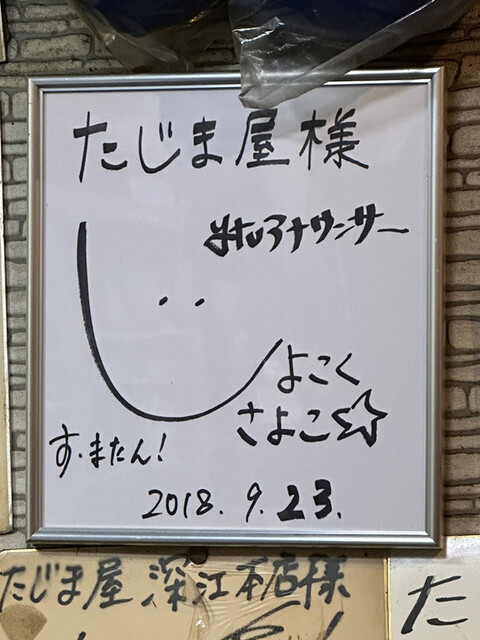 たじま屋様
ytvアナウンサー
しょこく
さよこ☆
す・またん!
2018.9.23.
たじま屋 深江本店様
た